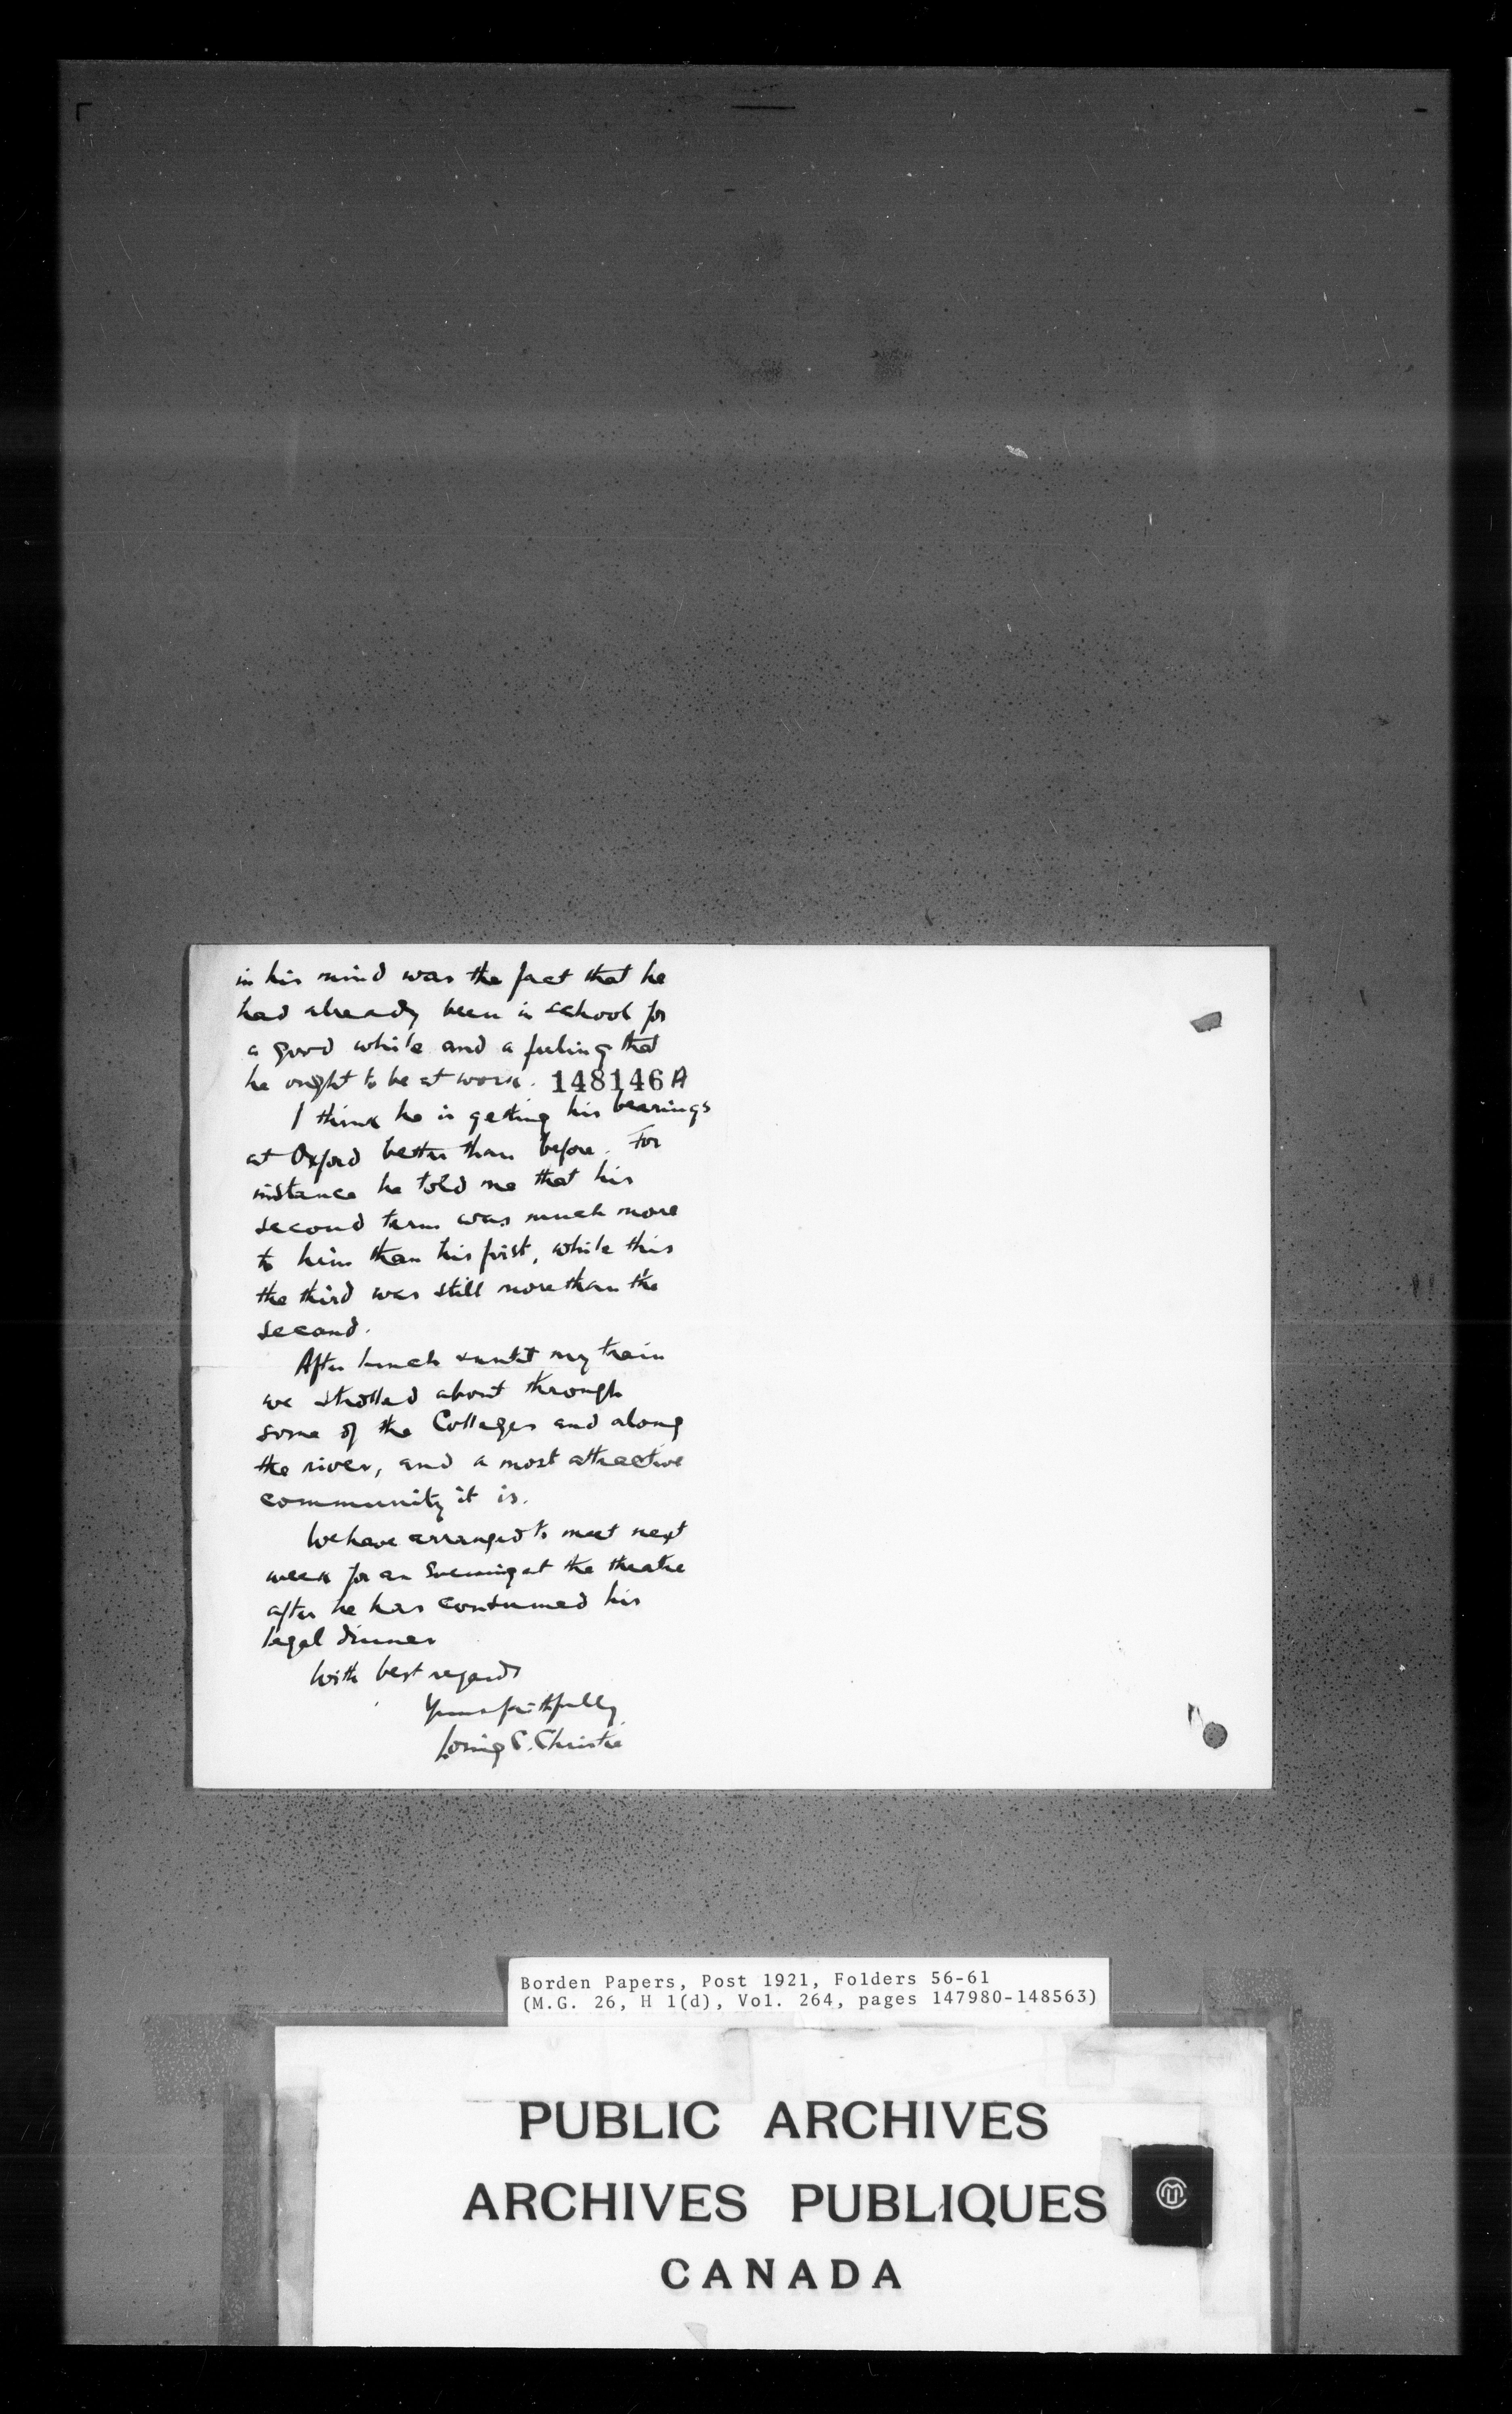 in his mind was the fact that he
had already been in school for
a good while and a feeling that
he ought to be at work. 148146 A
I think he is getting his bearings
at Oxford better than before. For
instance he told me that his
second term was much more
to him than his first, while this
the third was still more than the
second.
After lunch & until my train
we strolled about through
some of the Colleges and along
the river, and a most attractive
community it is.
We have arranged to meet next
week for an evening at the theatre
after he has consumed his
legal dinner
With best regards
Yours faithfully
Loring C. Christie
Borden Papers, Post 1921, Folders 56-61
(M.G. 26, H 1(d), Vol. 264, pages 147980-148563)
PUBLIC ARCHIVES
ARCHIVES PUBLIQUES
CANADA